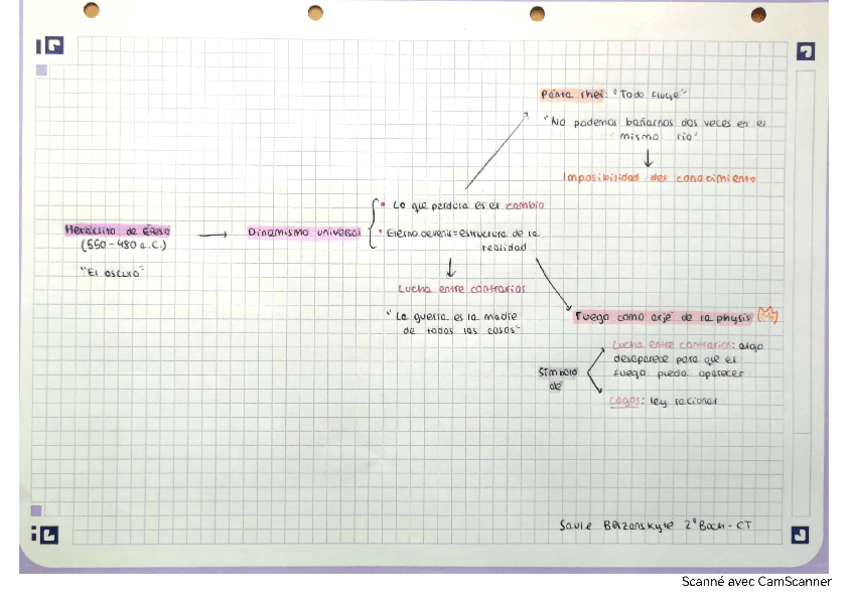 Panta rhei: "Todo fluye"
"No podemos bañarnos dos veces en el
mismo río"
Imposibilidad del conocimiento
Heráclito de Éfeso
(550-480 a.C.)
"El oscuro"
Dinamismo universal
• Lo que perdura es el cambio
• Eterno devenir=estructura de la
realidad
Lucha entre contrarios
"La guerra es la madre
de todas las cosas"
Fuego como arjé de la physis
Símbolo
de
Lucha entre contrarios: algo
desaparece para que el
fuego pueda aparecer
Logos: ley racional
Saule Berzanskyte 2ºBach-CT
Scanné avec CamScanner